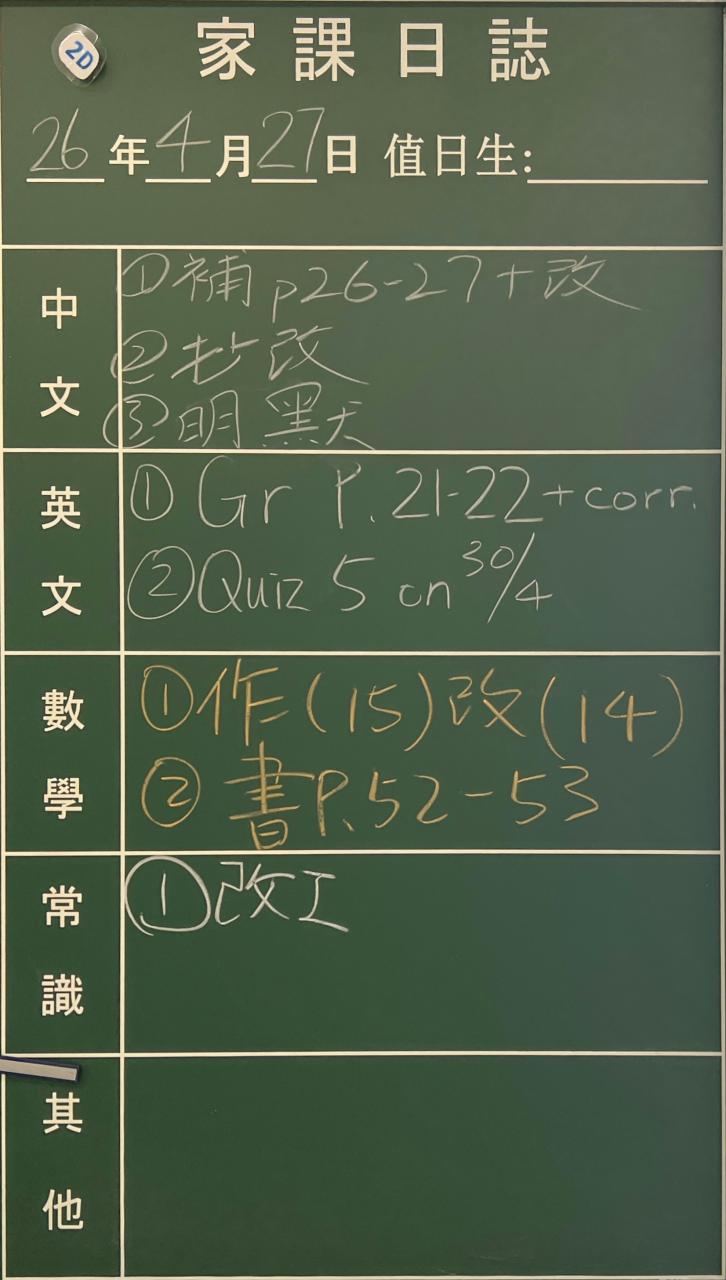 2D
家課日誌
26年4月27日 值日生:
中文
①補p26-27+改
②抄改
③明默
英文
①Gr P.21-22+corr.
②Quiz 5 on 30/4
數學
①作(15)改(14)
②書P.52-53
常識
①改工
其他